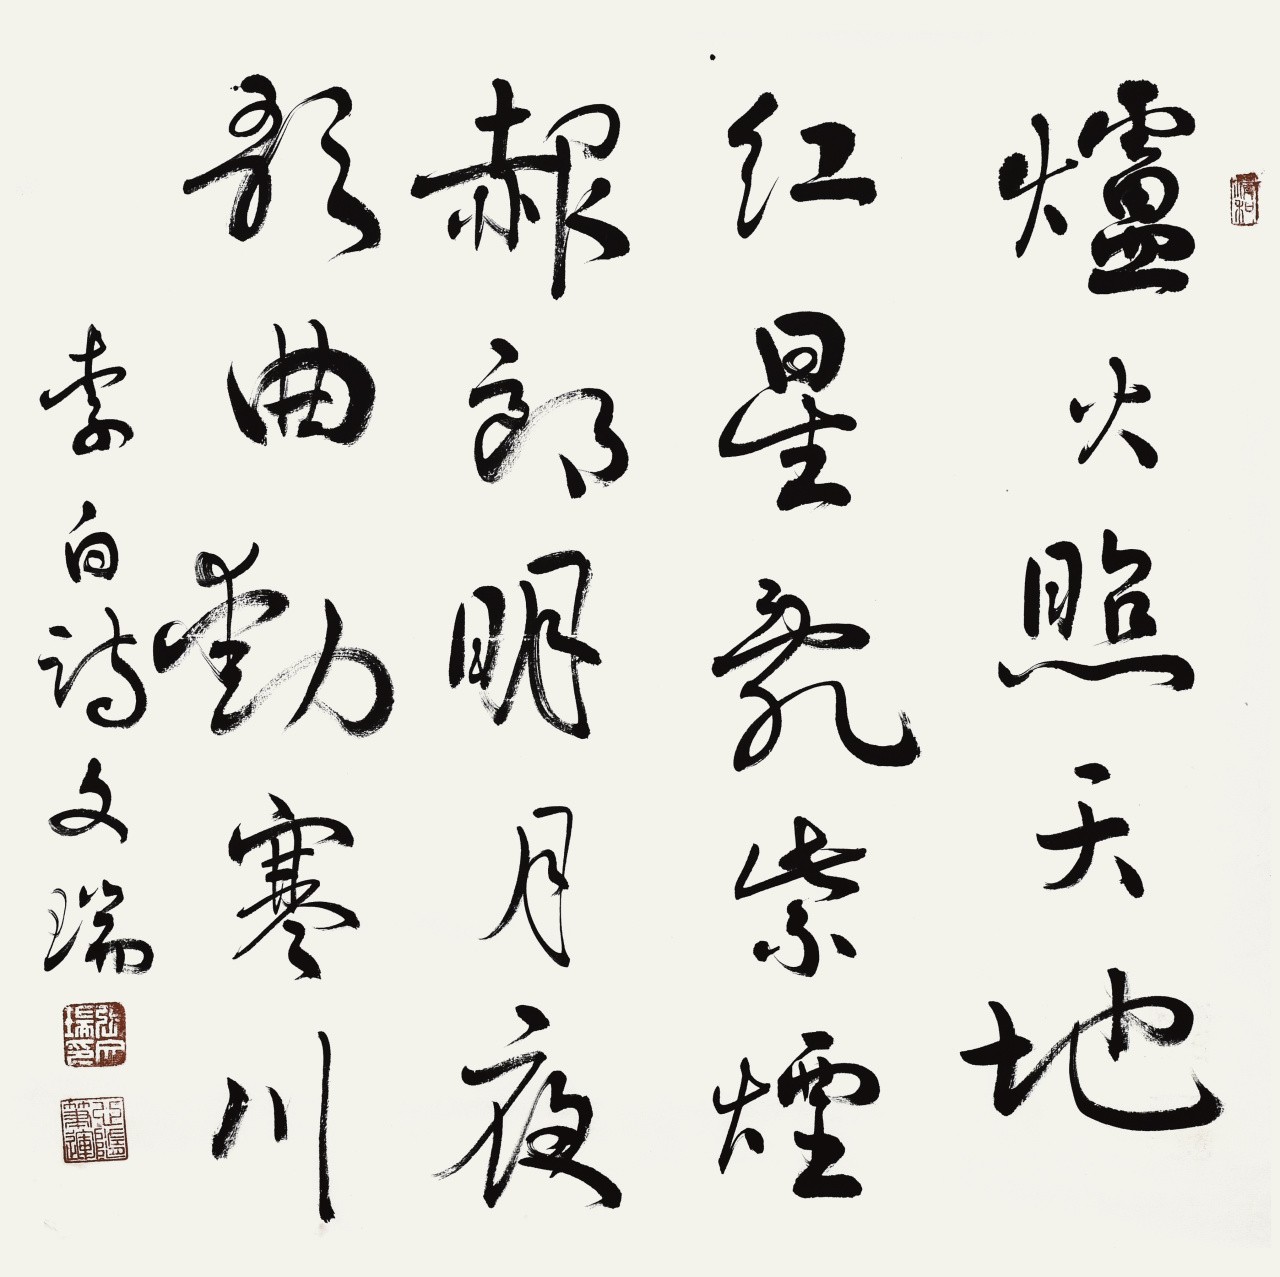 爐火照天地
红星亂紫煙
赧郎明月夜
歌曲動寒川
李白詩文瑞